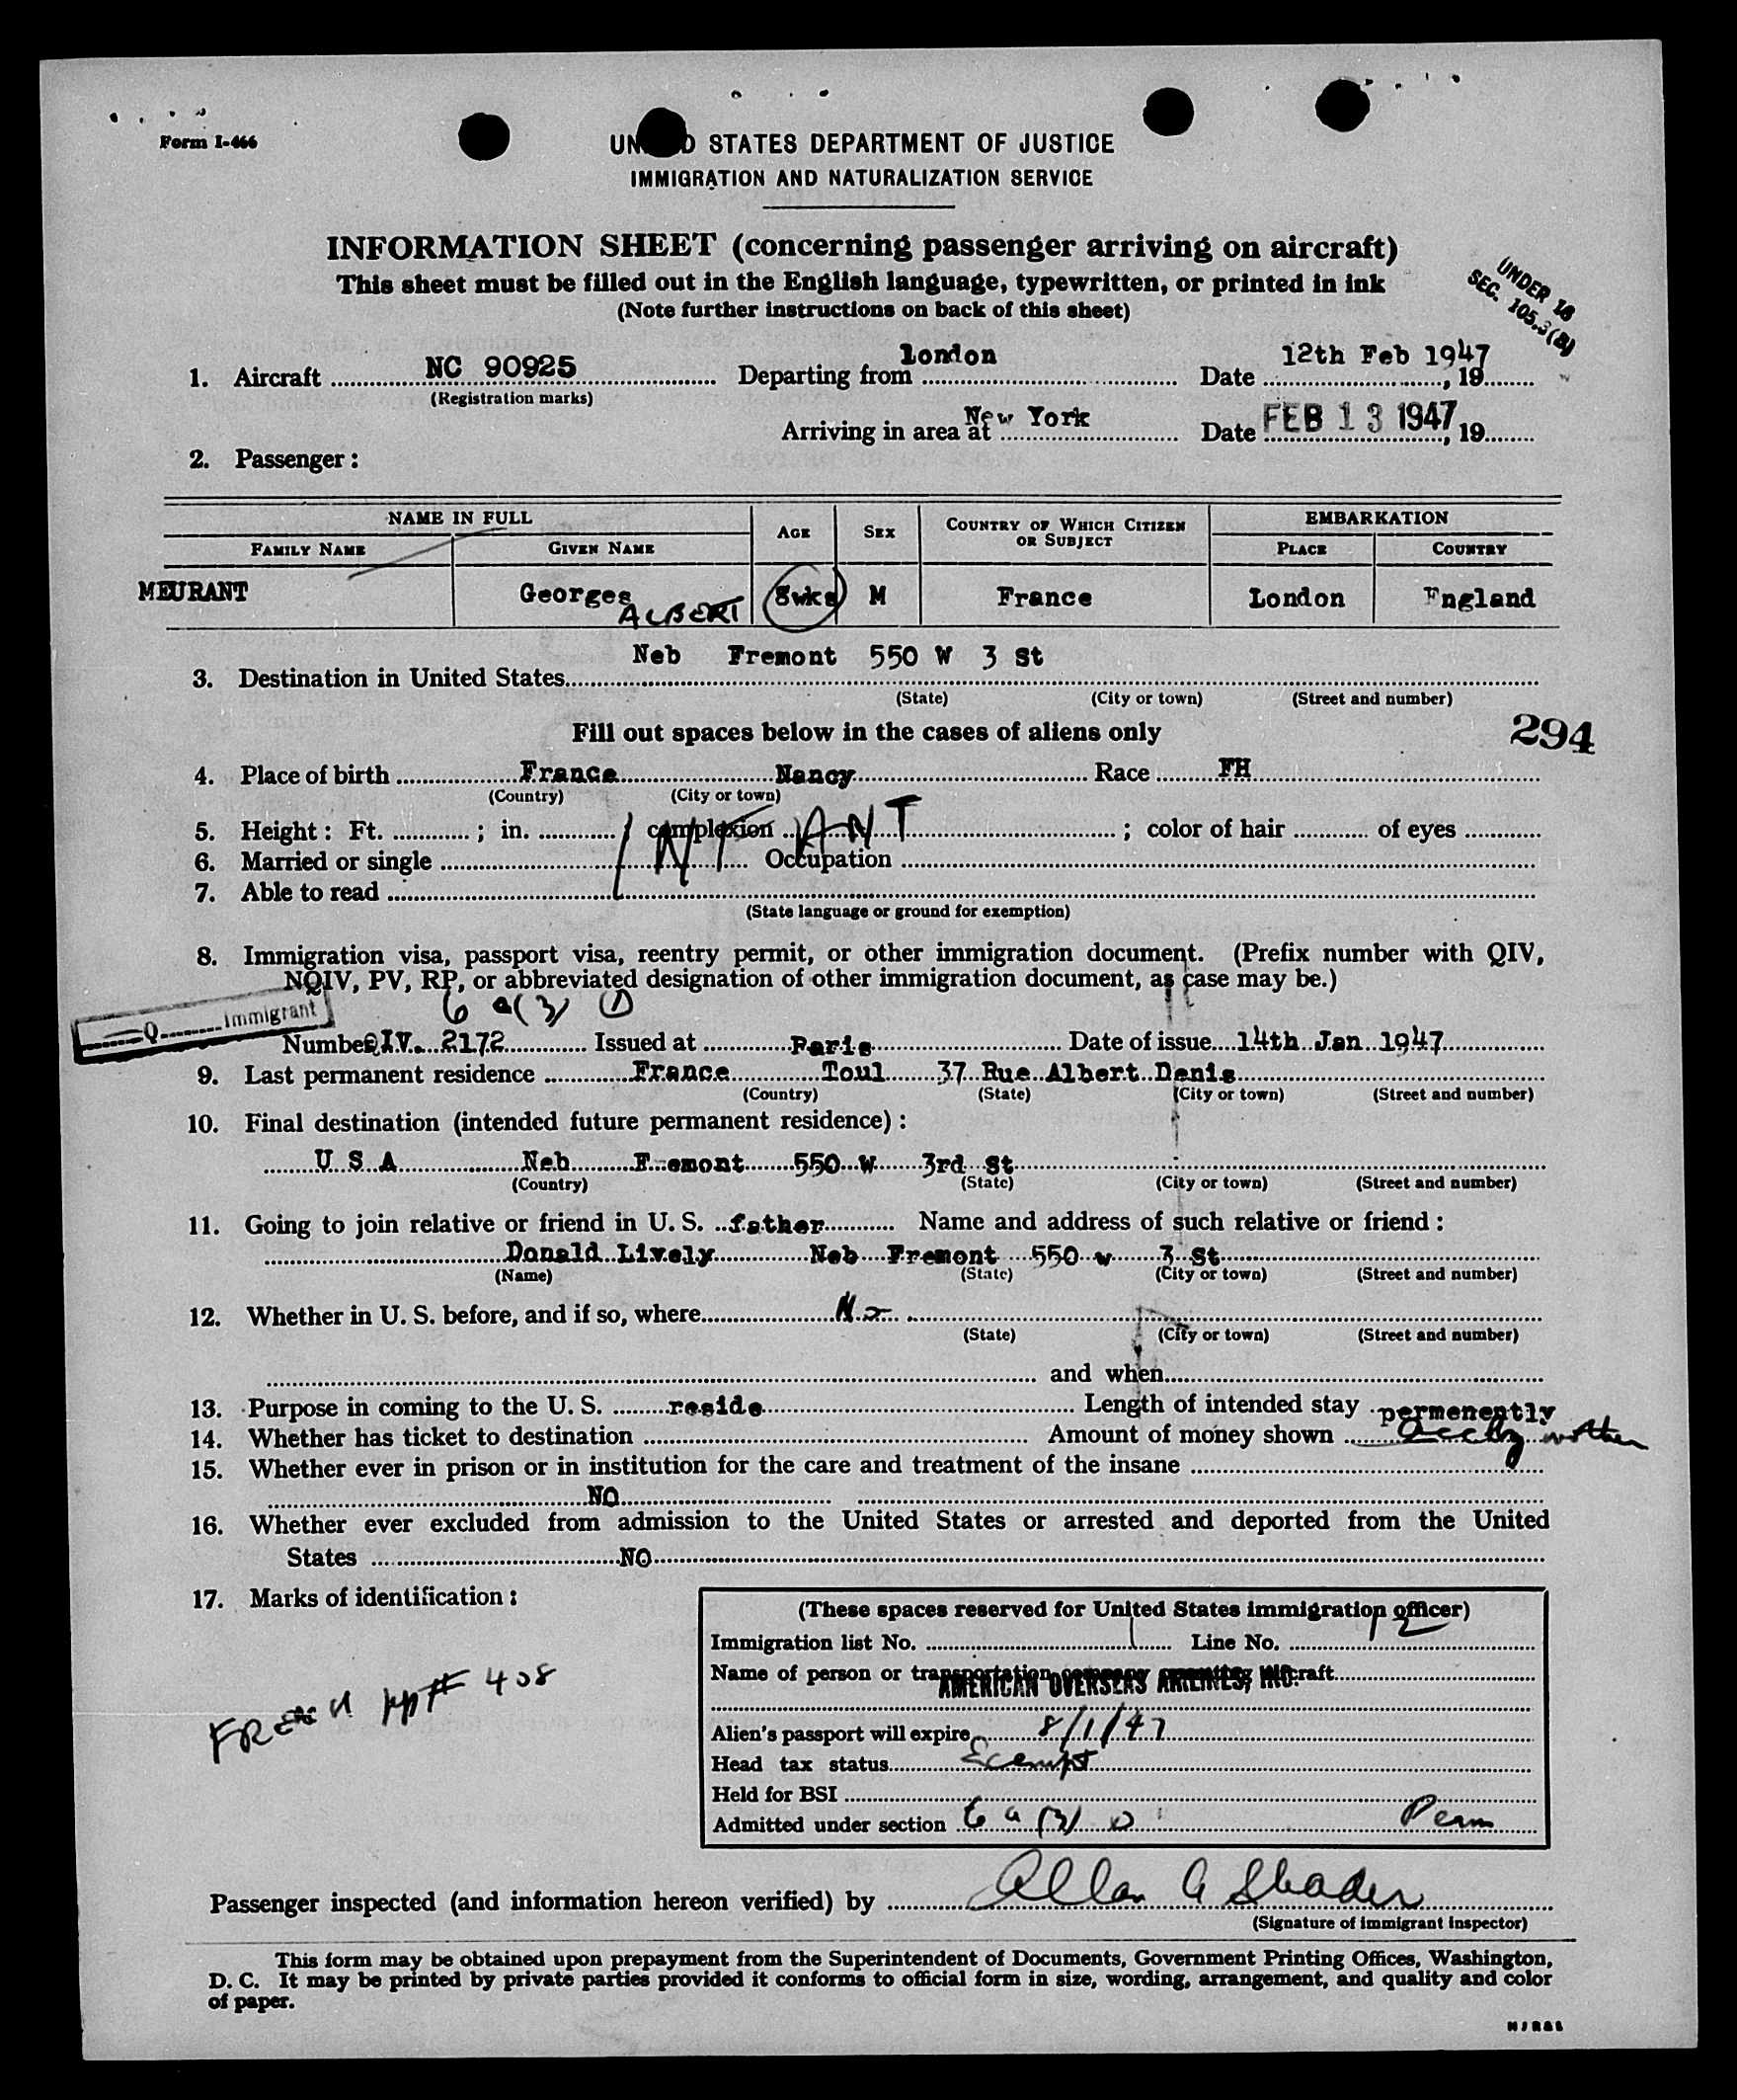 Form I-466
UN D STATES DEPARTMENT OF JUSTICE
IMMIGRATION AND NATURALIZATION SERVICE
INFORMATION SHEET (concerning passenger arriving on aircraft)
This sheet must be filled out in the English language, typewritten, or printed in ink
(Note further instructions on back of this sheet)
UNDER 16
SEC. 105.3(B)
1. Aircraft NC 90925 Departing from London Date 12th Feb 1947, 19
(Registration marks)
Arriving in area at New York Date FEB 13 1947, 19
2. Passenger:
NAME IN FULL AGE SEX COUNTRY OF WHICH CITIZEN OR SUBJECT EMBARKATION
FAMILY NAME GIVEN NAME PLACE COUNTRY
MEURANT Georges ALBERT 8wks M France London England
Neb Fremont 550 W 3 St
3. Destination in United States
(State) (City or town) (Street and number)
Fill out spaces below in the cases of aliens only
294
4. Place of birth France Nancy Race FH
(Country) (City or town)
5. Height: Ft. ; in. complexion ; color of hair of eyes
INFANT
6. Married or single Occupation
7. Able to read
(State language or ground for exemption)
8. Immigration visa, passport visa, reentry permit, or other immigration document. (Prefix number with QIV,
NQIV, PV, RP, or abbreviated designation of other immigration document, as case may be.)
Q Immigrant
6 a(3) D
Number QIV. 2172 Issued at Paris Date of issue 14th Jan 1947
9. Last permanent residence France Toul 37 Rue Albert Denis
(Country) (State) (City or town) (Street and number)
10. Final destination (intended future permanent residence):
U S A Neb Fremont 550 W 3rd St
(Country) (State) (City or town) (Street and number)
11. Going to join relative or friend in U. S. father Name and address of such relative or friend:
Donald Lively Neb Fremont 550 w 3 St
(Name) (State) (City or town) (Street and number)
12. Whether in U. S. before, and if so, where No
(State) (City or town) (Street and number)
and when
13. Purpose in coming to the U. S. reside Length of intended stay permenently
14. Whether has ticket to destination Amount of money shown mother
15. Whether ever in prison or in institution for the care and treatment of the insane
NO
16. Whether ever excluded from admission to the United States or arrested and deported from the United
States NO
17. Marks of identification:
FRENCH pp# 408
(These spaces reserved for United States immigration officer)
Immigration list No. 1 Line No. 12
Name of person or transportation company operating aircraft
AMERICAN OVERSEAS AIRLINES, INC.
Alien's passport will expire 8/1/47
Head tax status Exempt
Held for BSI
Admitted under section 6 a (3) D Perm
Passenger inspected (and information hereon verified) by Allan G Shader
(Signature of immigrant inspector)
This form may be obtained upon prepayment from the Superintendent of Documents, Government Printing Offices, Washington,
D. C. It may be printed by private parties provided it conforms to official form in size, wording, arrangement, and quality and color
of paper.